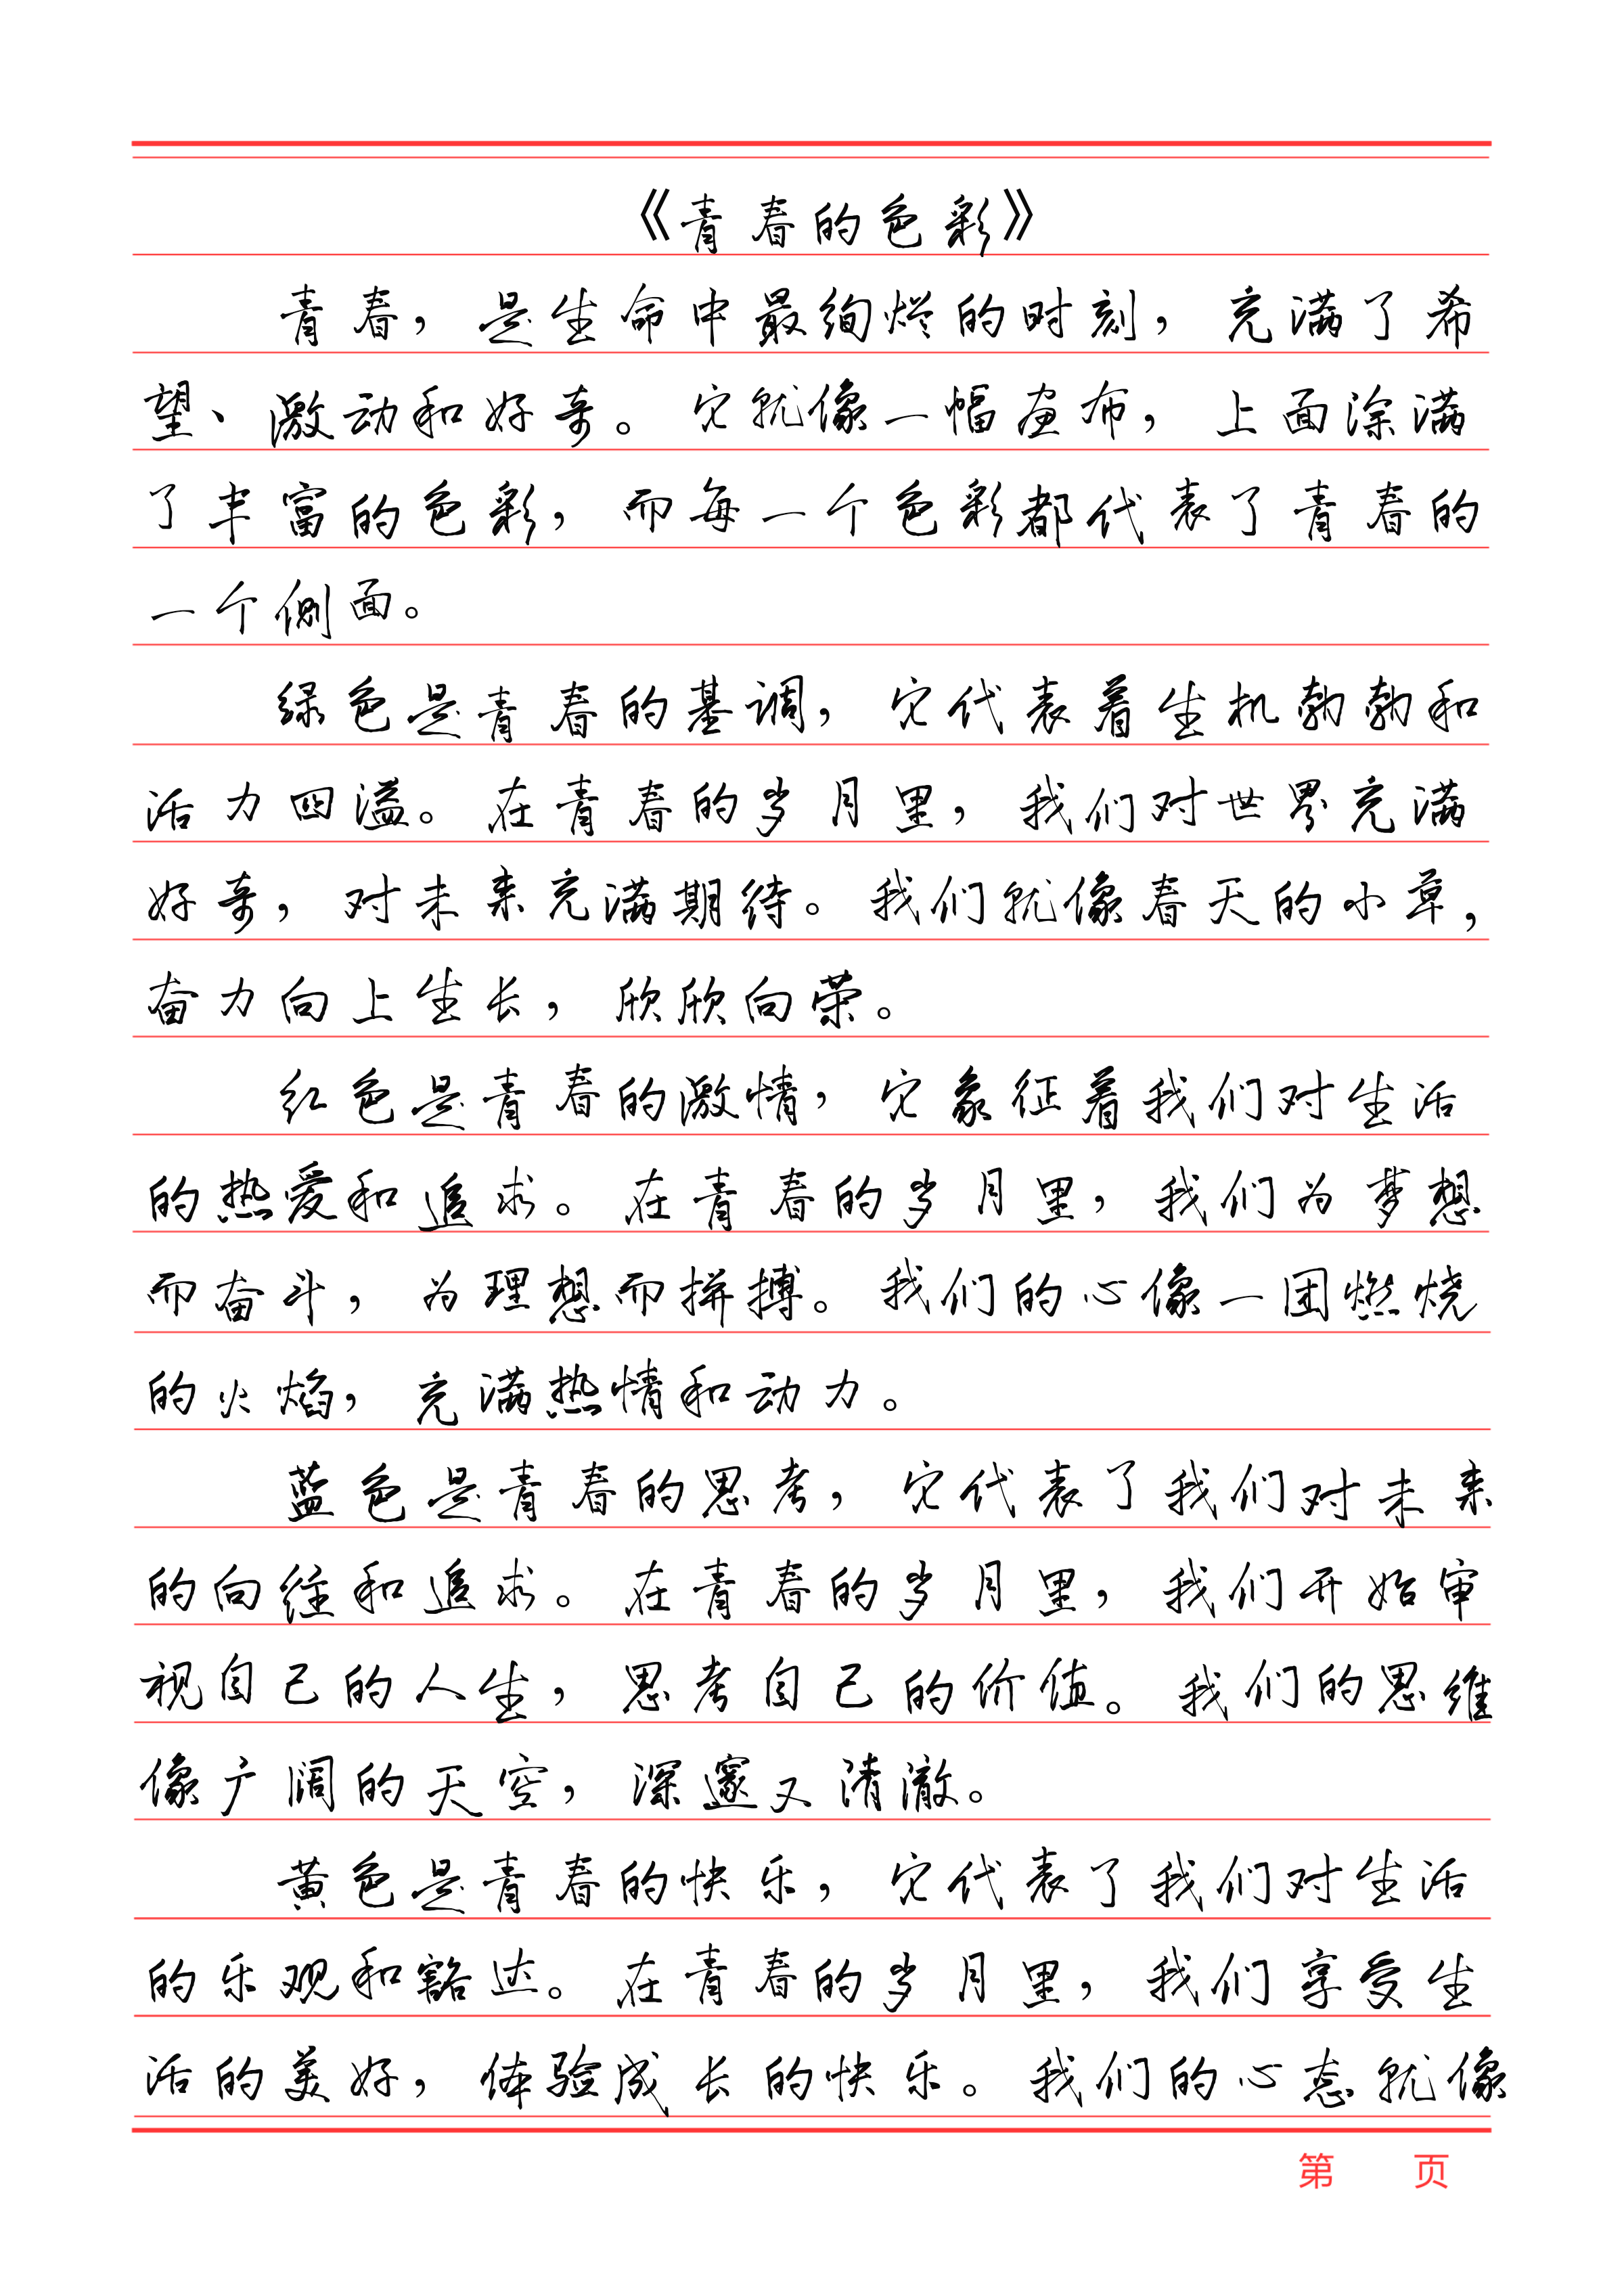 《青春的色彩》
青春，是生命中最绚烂的时刻，充满了希
望、激动和好奇。它就像一幅画布，上面涂满
了丰富的色彩，而每一个色彩都代表了青春的
一个侧面。
绿色是青春的基调，它代表着生机勃勃和
活力四溢。在青春的岁月里，我们对世界充满
好奇，对未来充满期待。我们就像春天的小草，
奋力向上生长，欣欣向荣。
红色是青春的激情，它象征着我们对生活
的热爱和追求。在青春的岁月里，我们为梦想
而奋斗，为理想而拼搏。我们的心像一团燃烧
的火焰，充满热情和动力。
蓝色是青春的思考，它代表了我们对未来
的向往和追求。在青春的岁月里，我们开始审
视自己的人生，思考自己的价值。我们的思维
像广阔的天空，深邃又清澈。
黄色是青春的快乐，它代表了我们对生活
的乐观和豁达。在青春的岁月里，我们享受生
活的美好，体验成长的快乐。我们的心态就像
第 页